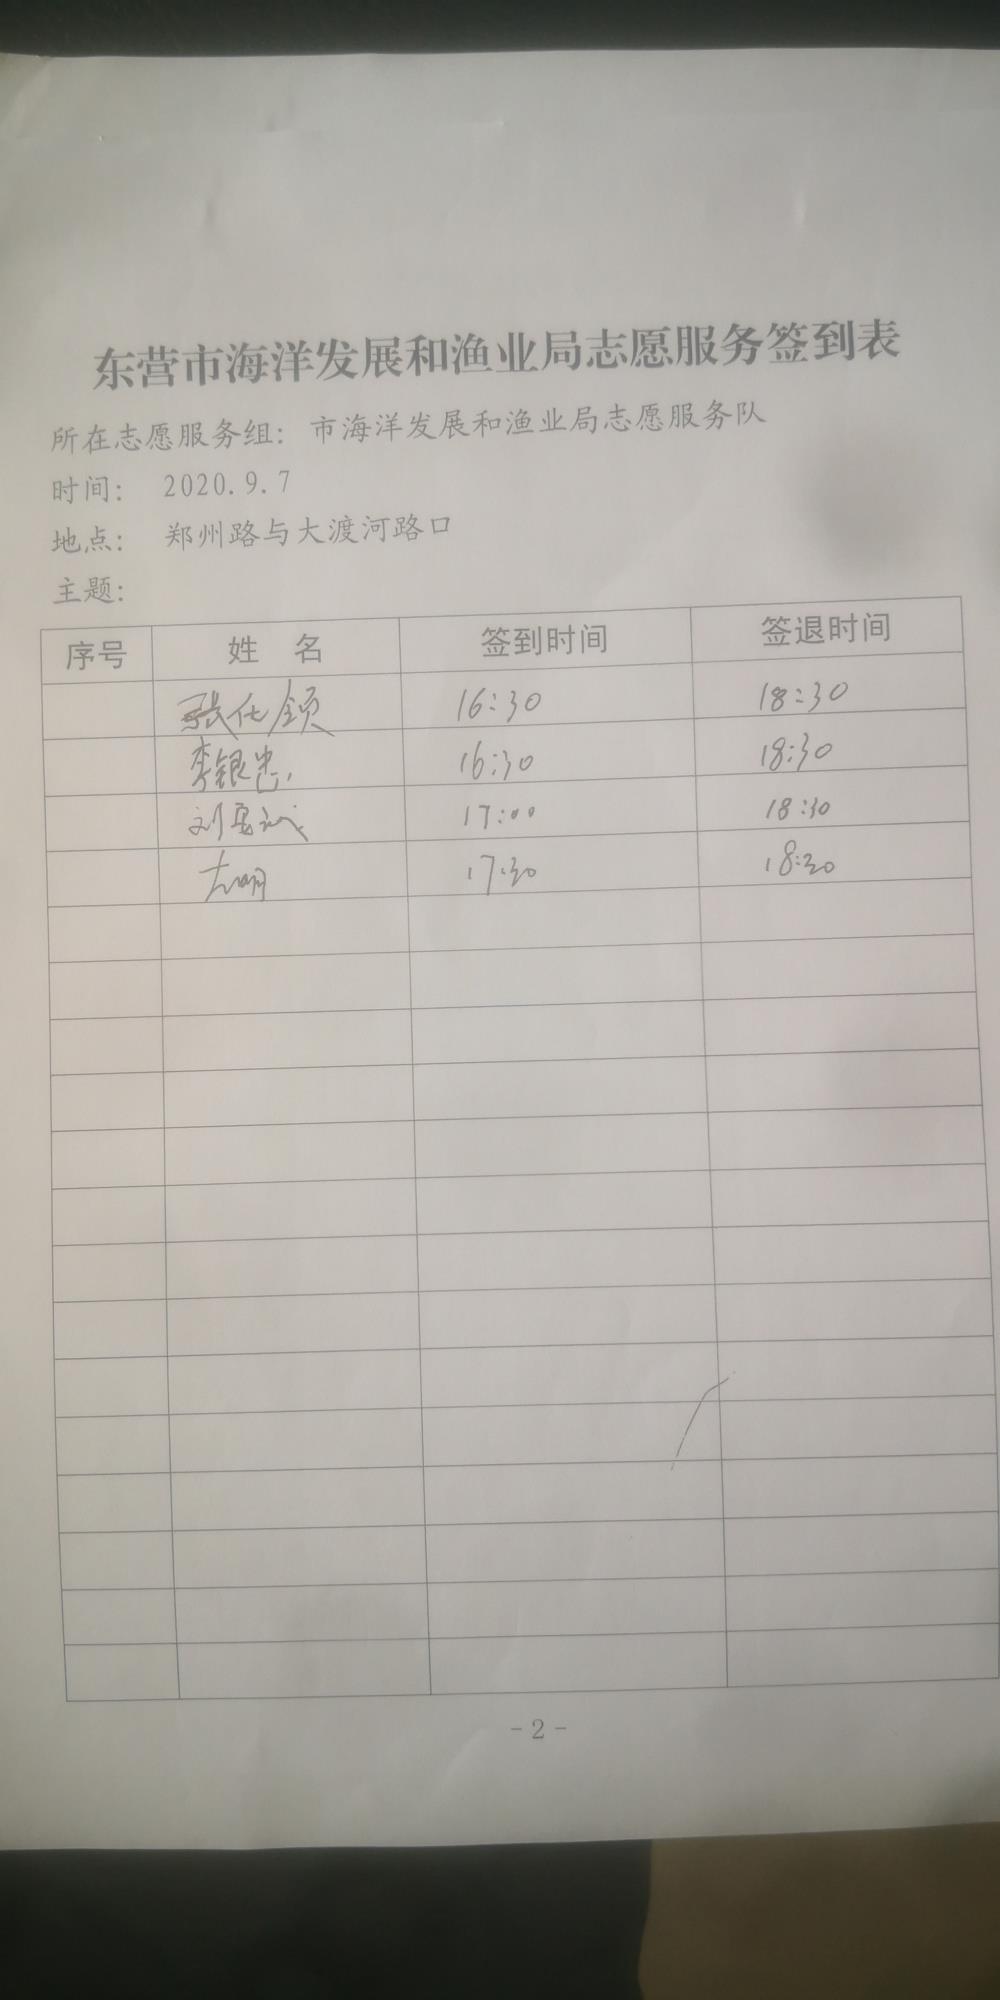 东营市海洋发展和渔业局志愿服务签到表
所在志愿服务组：市海洋发展和渔业局志愿服务队
时间： 2020.9.7
地点： 郑州路与大渡河路口
主题：
序号 姓 名 签到时间 签退时间
张仕领 16:30 18:30
李银忠 16:30 18:30
刘 17:00 18:30
明 17:30 18:30
- 2 -